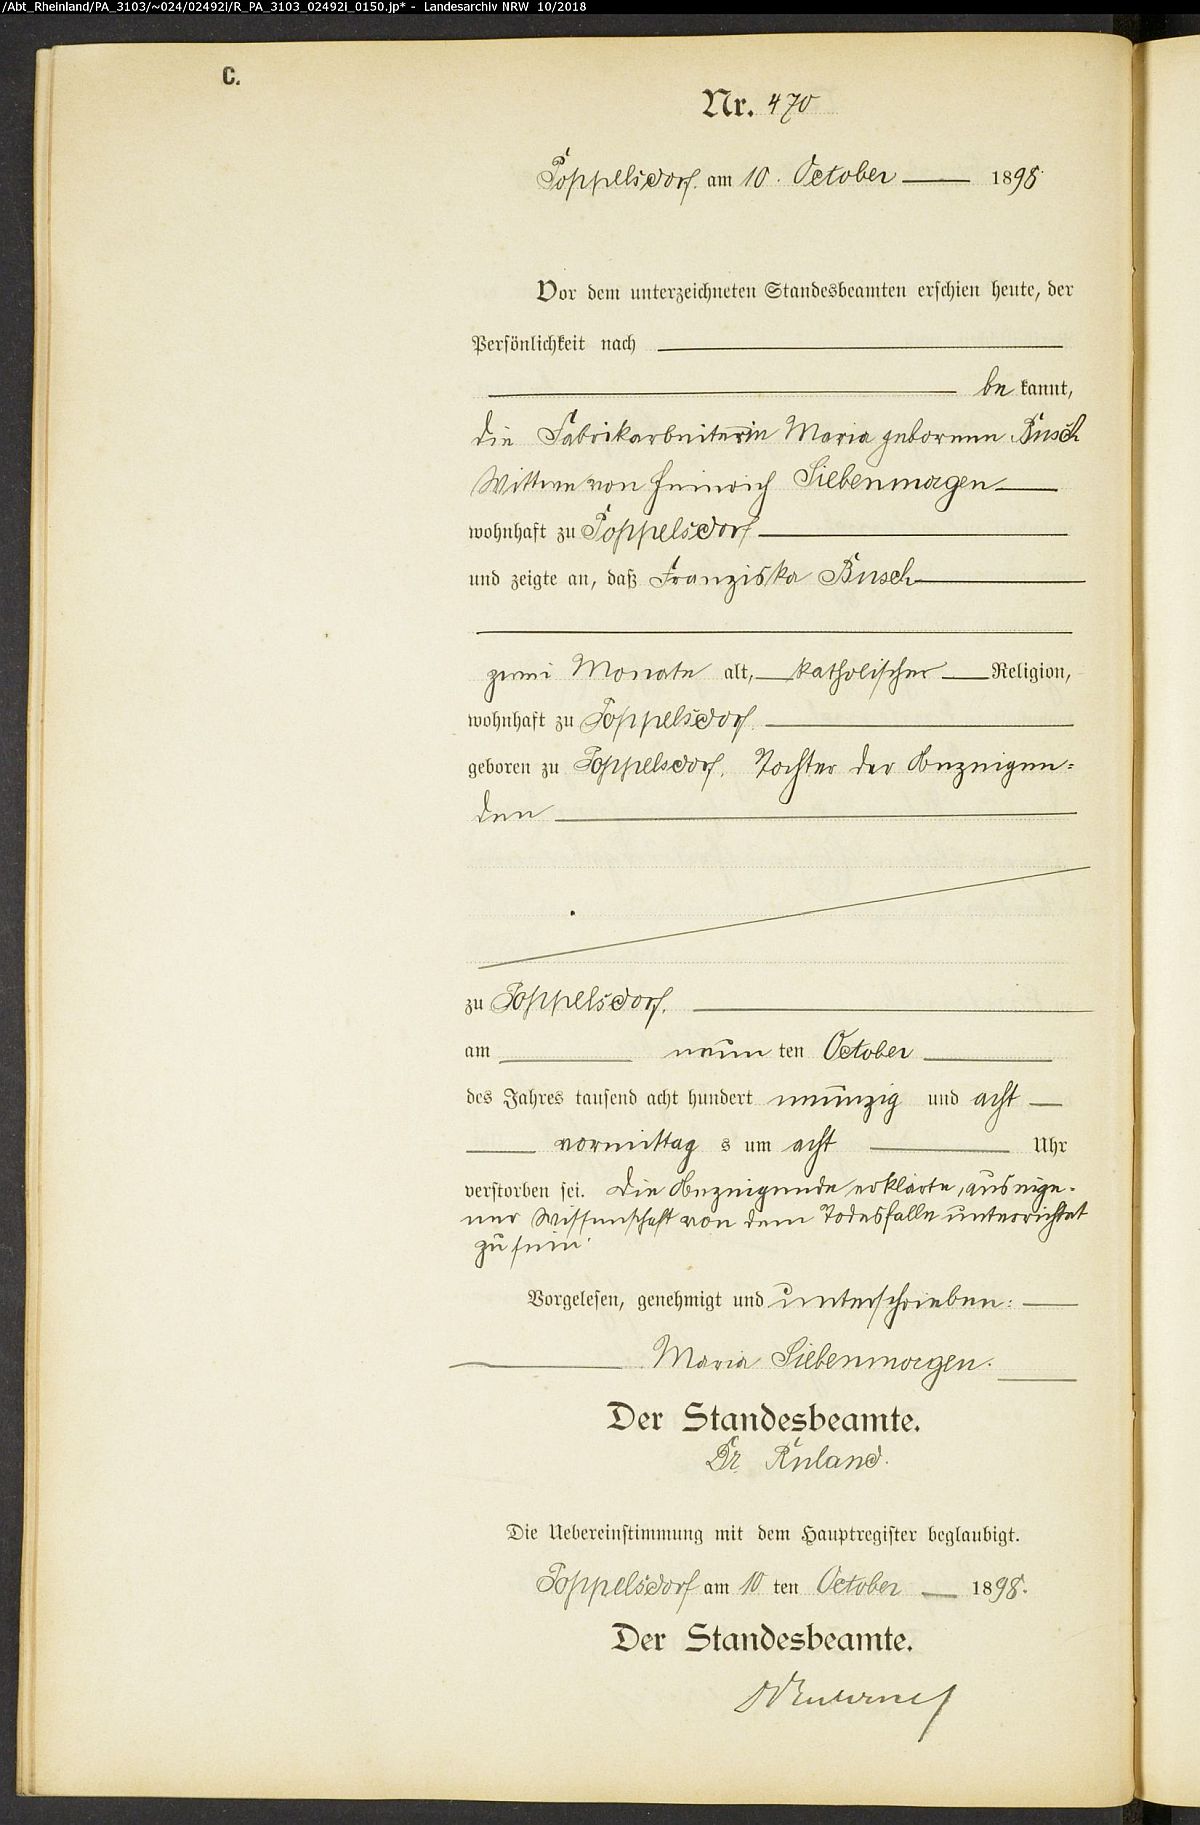 /Abt_Rheinland/PA_3103/~024/02492i/R_PA_3103_02492i_0150.jp* - Landesarchiv NRW 10/2018
C.
Nr. 470
Poppelsdorf. am 10. October 1898
Vor dem unterzeichneten Standesbeamten erschien heute, der
Persönlichkeit nach
be kannt,
die Fabrikarbeiterin Maria geborene Busch
Wittwe von Heinrich Siebenmorgen
wohnhaft zu Poppelsdorf
und zeigte an, daß Franziska Busch
zwei Monate alt, katholischer Religion,
wohnhaft zu Poppelsdorf.
geboren zu Poppelsdorf. Tochter der Anzeigen=
den
zu Poppelsdorf.
am neun ten October
des Jahres tausend acht hundert neunzig und acht
vormittag s um acht Uhr
verstorben sei. Die Anzeigende erklärte, aus eige-
ner Wissenschaft von dem Todesfalle unterrichtet
zu sein.
Vorgelesen, genehmigt und unterschrieben:
Maria Siebenmorgen.
Der Standesbeamte.
Dr. Ruland.
Die Uebereinstimmung mit dem Hauptregister beglaubigt.
Poppelsdorf am 10 ten October 1898.
Der Standesbeamte.